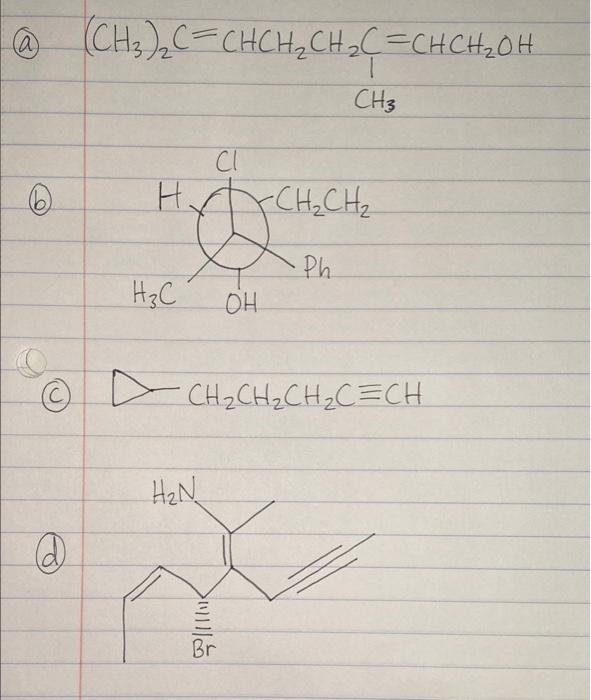 ⓐ (CH₃)₂C=CHCH₂CH₂C=CHCH₂OH
CH₃
Cl
ⓑ H CH₂CH₂
Ph
H₃C OH
ⓒ CH₂CH₂CH₂C≡CH
H₂N
ⓓ
Br